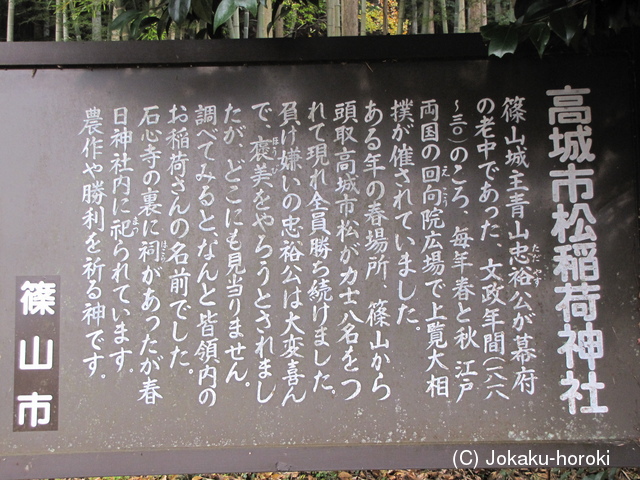 高城市松稲荷神社
篠山城主青山忠裕公が幕府
ただ やす
の老中であった、文政年間(一八一八
〜三〇)のころ、毎年春と秋、江戸
両国の回向院広場で上覧大相
え こう
撲が催されていました。
ある年の春場所、篠山から
頭取高城市松が力士八名をつ
れて現れ全員勝ち続けました。
負け嫌いの忠裕公は大変喜ん
で、褒美をやろうとされまし
ほう び
たが、どこにも見当りません。
調べてみると、なんと皆領内の
お稲荷さんの名前でした。
石心寺の裏に祠があったが春
ほこら
日神社内に祀られています。
まつ
農作や勝利を祈る神です。
篠山市
(C) Jokaku-horoki